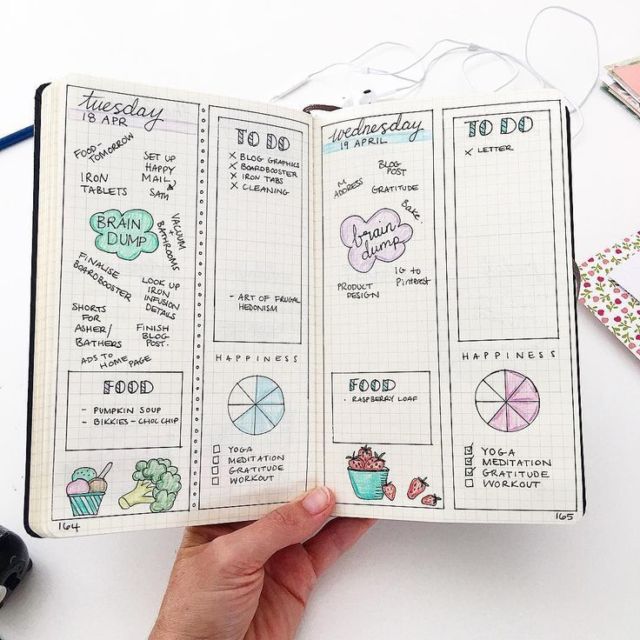 tuesday
18 APR
FOOD TOMORROW
SET UP
HAPPY
MAIL
IRON
TABLETS
SATM
BRAIN
DUMP
VACUUM
BATHROOMS
FINALISE
BOARDBOOSTER
LOOK UP
IRON
INFUSION
DETAILS
SHORTS
FOR
ASHER/
BATHERS
FINISH
BLOG
POST.
ADS TO HOME PAGE
FOOD
- PUMPKIN SOUP
- BIKKIES - CHOC CHIP
164
TO DO
X BLOG GRAPHICS
X BOARDBOOSTER
X IRON TABS
X CLEANING
- ART OF FRUGAL
HEDONISM
HAPPINESS
YOGA
MEDITATION
GRATITUDE
WORKOUT
wednesday
19 APRIL
BLOG
POST
M
ADDRESS
GRATITUDE
Bake
brain
dump
IG to
Pinterest
PRODUCT
DESIGN
FOOD
- RASPBERRY LOAF
TO DO
X LETTER
HAPPINESS
YOGA
MEDITATION
GRATITUDE
WORKOUT
165